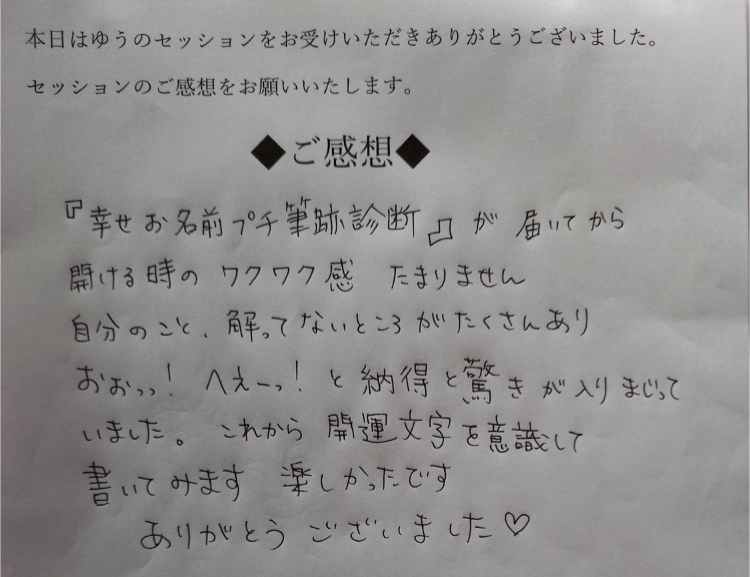 本日はゆうのセッションをお受けいただきありがとうございました。
セッションのご感想をお願いいたします。
◆ご感想◆
『幸せお名前プチ筆跡診断』が 届いてから
開ける時の ワクワク感 たまりません
自分のこと、解ってないところがたくさんあり
おぉっっ! へぇーっ! と納得と驚きが入りまじって
いました。これから 開運文字を意識して
書いてみます 楽しかったです
ありがとう ございいました♡